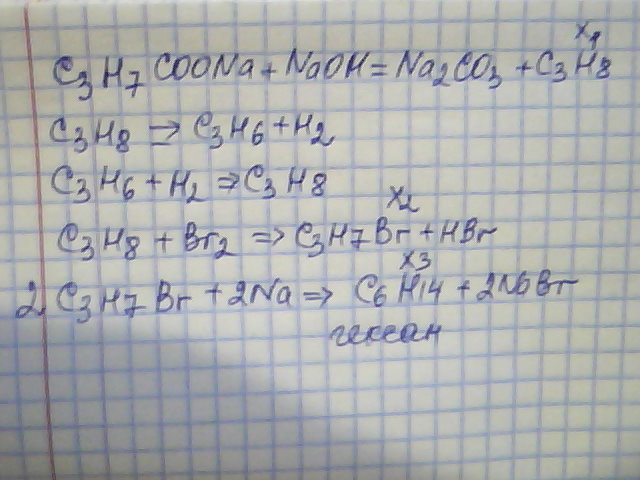 X1
C3H7COONa + NaOH = Na2CO3 + C3H8
C3H8 => C3H6 + H2
C3H6 + H2 => C3H8
X2
C3H8 + Br2 => C3H7Br + HBr
X3
2 C3H7Br + 2Na => C6H14 + 2NaBr
гексан